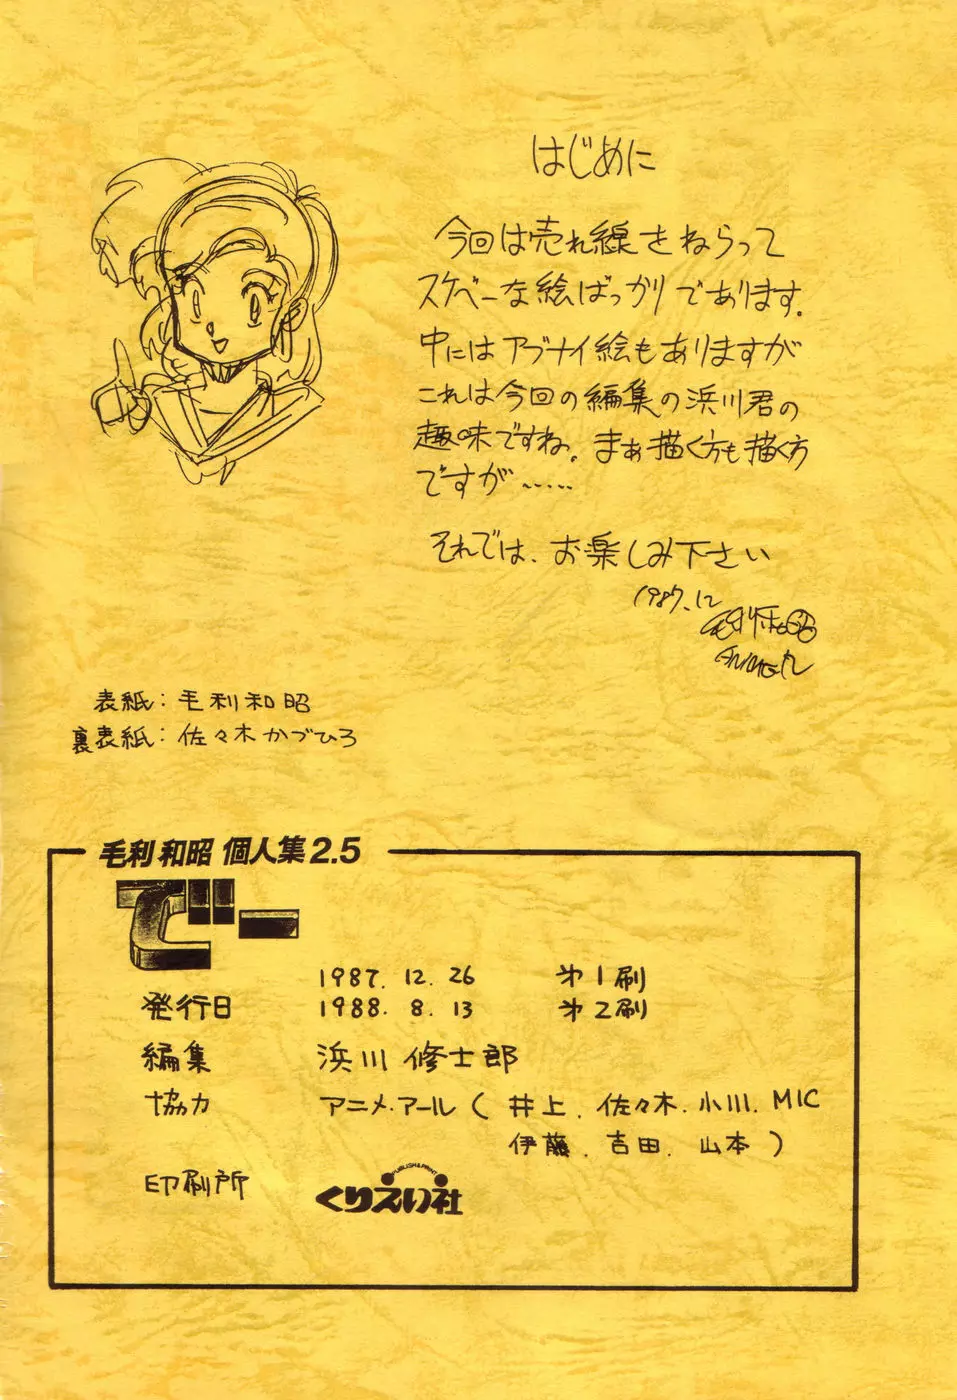 はじめに
今回は売れ線をねらって
スケベーな絵ばっかりであります。
中にはアブナイ絵もありますが
これは今回の編集の浜川君の
趣味ですね。まぁ描く方も描く方
ですが……
それでは、お楽しみ下さい
1987.12
毛利和昭
表紙：毛利和昭
裏表紙：佐々木かづひろ
毛利和昭 個人集2.5
でー
1987. 12. 26 第1刷
発行日 1988. 8. 13 第2刷
編集 浜川 修士郎
協力 アニメ・アール（井上. 佐々木. 小川. MIC
伊藤. 吉田. 山本）
PUBLISH&PRINT
印刷所 くりえい社